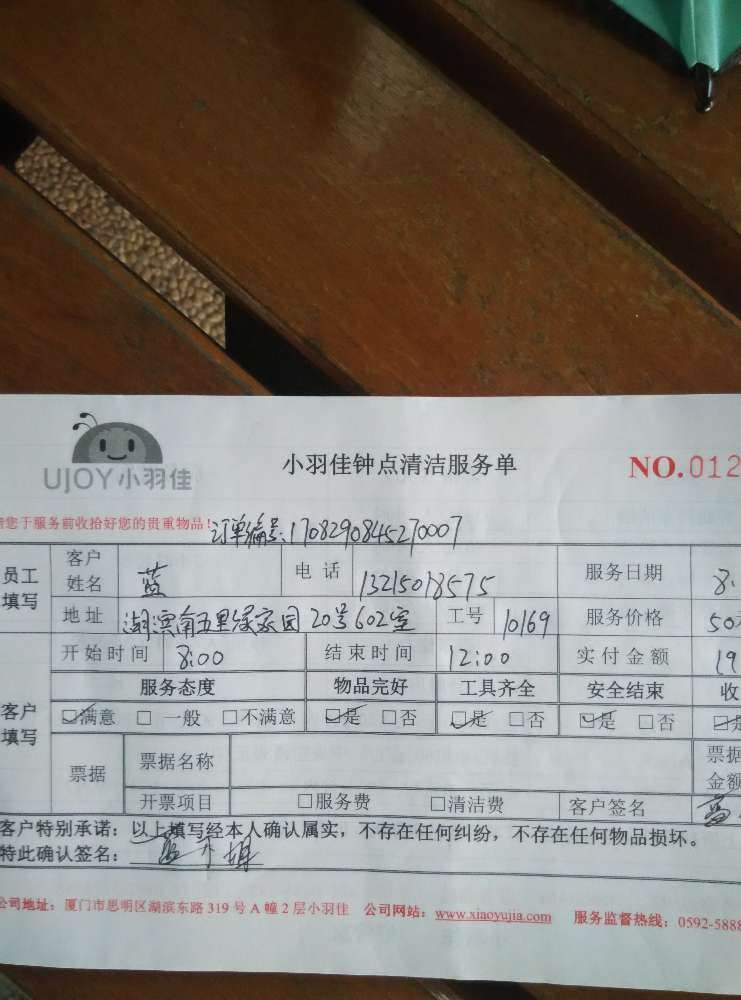 UJOY小羽佳
小羽佳钟点清洁服务单
NO.012
您于服务前收拾好您的贵重物品!
订单编号:1708290845270007
员工填写 客户姓名 蓝 电话 13215018575 服务日期 8.
地址 湖滨南五里绿家园20号602室 工号 10169 服务价格 50
开始时间 8:00 结束时间 12:00 实付金额 19
客户填写 服务态度 物品完好 工具齐全 安全结束 收
☑满意 □一般 □不满意 ☑是 □否 ☑是 □否 ☑是 □否 ☑是
票据 票据名称 票据金额
开票项目 □服务费 □清洁费 客户签名 蓝
客户特别承诺:以上填写经本人确认属实,不存在任何纠纷,不存在任何物品损坏。
特此确认签名:
公司地址:厦门市思明区湖滨东路319号A幢2层小羽佳 公司网站:www.xiaoyujia.com 服务监督热线:0592-5888